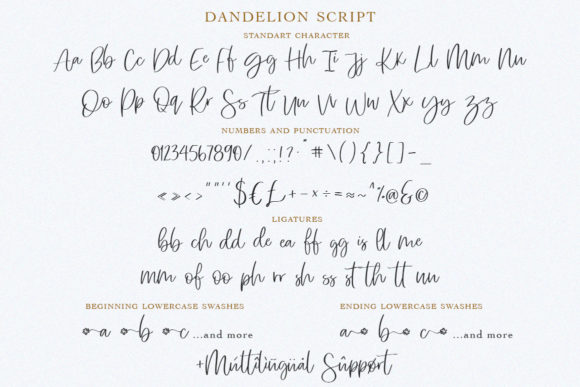 DANDELION SCRIPT
STANDART CHARACTER
Aa Bb Cc Dd Ee Ff Gg Hh Ii Jj Kk Ll Mm Nn
Oo Pp Qq Rr Ss Tt Uu Vv Ww Xx Yy Zz
NUMBERS AND PUNCTUATION
01234567890/.,:;!?·"#\(){}[]-_
«»<>""''$€£+-×÷=≈~^%@&©
LIGATURES
bb ch dd de ea ff gg is ll me
mm of oo ph rr sh ss st th tt uu
BEGINNING LOWERCASE SWASHES ENDING LOWERCASE SWASHES
a b c ...and more a b c ...and more
+Multilingual Support